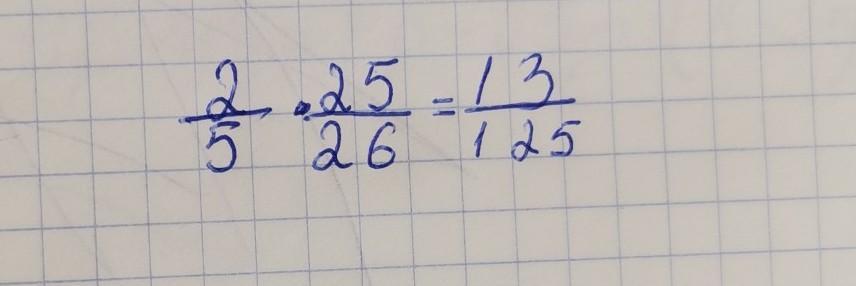 2/5 · 25/26 = 13/125